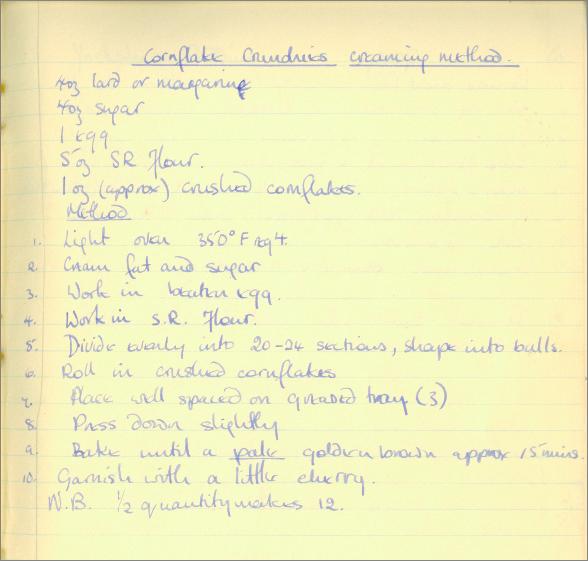 Cornflake Crunchies creaming method.
4oz lard or margarine
4oz sugar
1 egg
5oz SR Flour.
1oz (approx) crushed cornflakes.
Method
1. Light oven 350°F reg 4.
2. Cream fat and sugar
3. Work in beaten egg.
4. Work in S.R. Flour.
5. Divide evenly into 20-24 sections, shape into balls.
6. Roll in crushed cornflakes
7. Place well spaced on greased tray (3)
8. Press down slightly
9. Bake until a pale golden brown approx 15 mins.
10. Garnish with a little cherry.
N.B. 1/2 quantity makes 12.